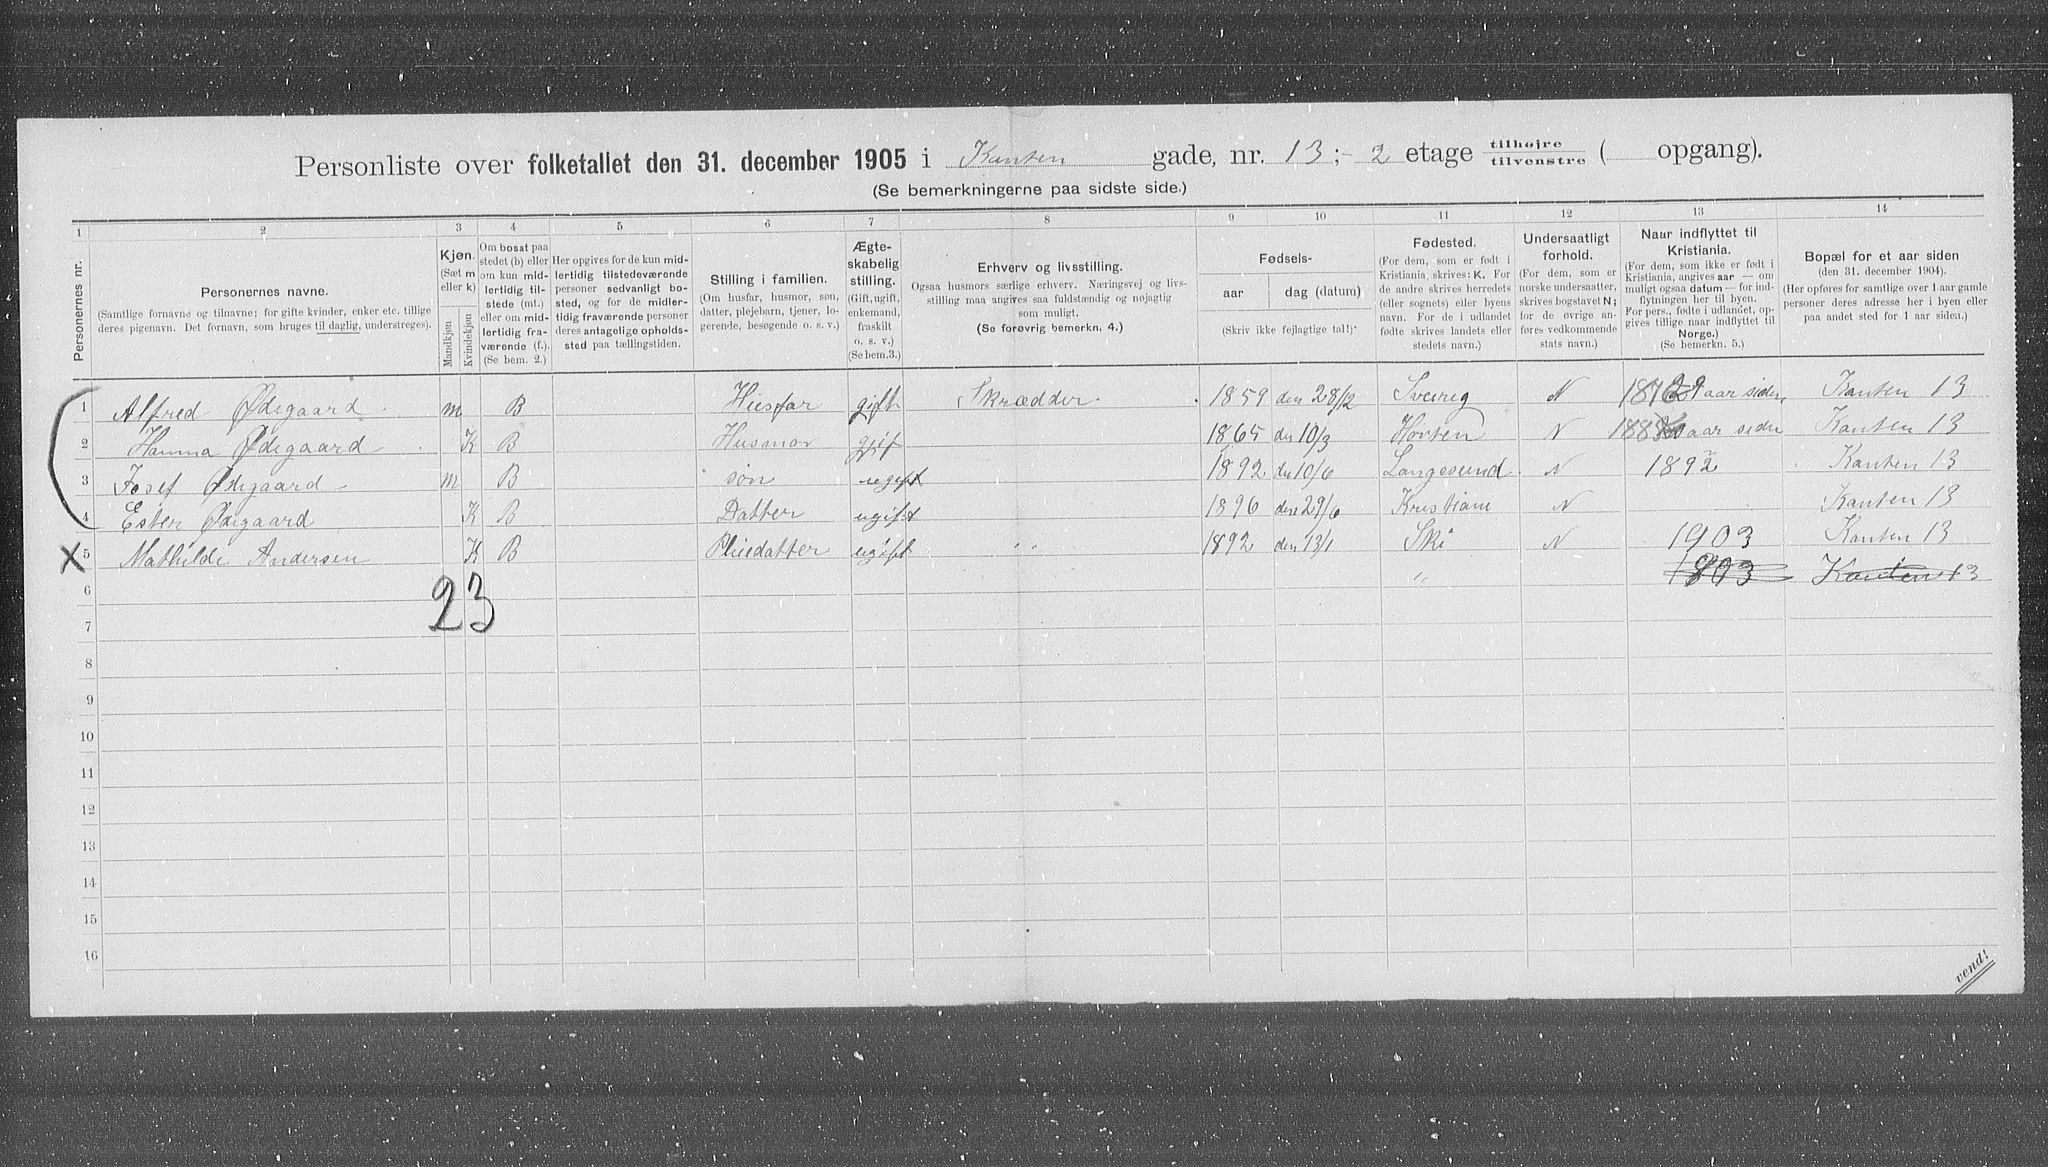 Personliste over folketallet den 31. december 1905 i Kanten gade, nr. 13 ;- 2 etage tilhøjre tilvenstre ( opgang).
(Se bemerkningerne paa sidste side.)
1 2 3 4 5 6 7 8 9 10 11 12 13 14
Personernes nr.
Personernes navne.
(Samtlige fornavne og tilnavne; for gifte kvinder, enker etc. tillige
deres pigenavn. Det fornavn, som bruges til daglig, understreges).
Kjøn.
(Sæt m
eller k)
Mandkjøn
Kvindekjøn
Om bosat paa
stedet (b) eller
om kun mid-
lertidig til-
stede (mt.)
eller om mid-
lertidig fra-
værende (f.).
(Se bem. 2.)
Her opgives for de kun mid-
lertidig tilstedeværende
personer sedvanlig bo-
sted, og for de midler-
tidig fraværende personer
deres antagelige opholds-
sted paa tællingstiden.
Stilling i familien.
(Om husfar, husmor, søn,
datter, plejebarn, tjener, lo-
gerende, besøgende o. s. v.)
Ægte-
skabelig
stilling.
(Gift, ugift,
enkemand,
fraskilt
o. s. v.)
(Se bem. 3.)
Erhverv og livsstilling.
Ogsaa husmors særlige erhverv. Næringsvej og livs-
stilling maa angives saa fuldstændig og nøjagtig
som muligt.
(Se forøvrig bemerkn. 4.)
Fødsels-
aar dag (datum)
(Skriv ikke fejlagtige tal!)
Fødested.
(For dem, som er født i
Kristiania, skrives: K. For
de andre skrives herredets
(eller sognets) eller byens
navn. For de i udlandet
fødte skrives landets eller
stedets navn.)
Undersaatligt
forhold.
(For dem, som er
norske undersaatter,
skrives bogstavet N;
for de øvrige an-
føres vedkommende
stats navn.)
Naar indflyttet til
Kristiania.
(For dem, som ikke er født i
Kristiania, angives aar — om
muligt ogsaa datum — for ind-
flytningen her til byen.
For pers., fødte i udlandet, op-
gives tillige naar indflyttet til
Norge.)
(Se bemerkn. 5.)
Bopæl for et aar siden
(den 31. december 1904).
(Her opføres for samtlige over 1 aar gamle
personer deres adresse her i byen eller
paa andet sted for 1 aar siden.)
1 Alfred Ødegaard m B Husfar gift Skrædder 1859 den 28/12 Sverig N aar siden Kanten 13
2 Hanna Ødegaard K B Husmor gift 1865 den 10/3 Horten N aar siden Kanten 13
3 Josef Ødegaard m B søn ugift 1892 den 10/6 Langesund N 1892 Kanten 13
4 Ester Ødegaard K B Datter ugift 1896 den 29/6 Kristiani N Kanten 13
X 5 Mathilde Andersen K B Pliedatter ugift " " 1892 den 13/1 Ski N 1903 Kanten 13
6 " 1893 Kanten 13
23
7
8
9
10
11
12
13
14
15
16
vend!